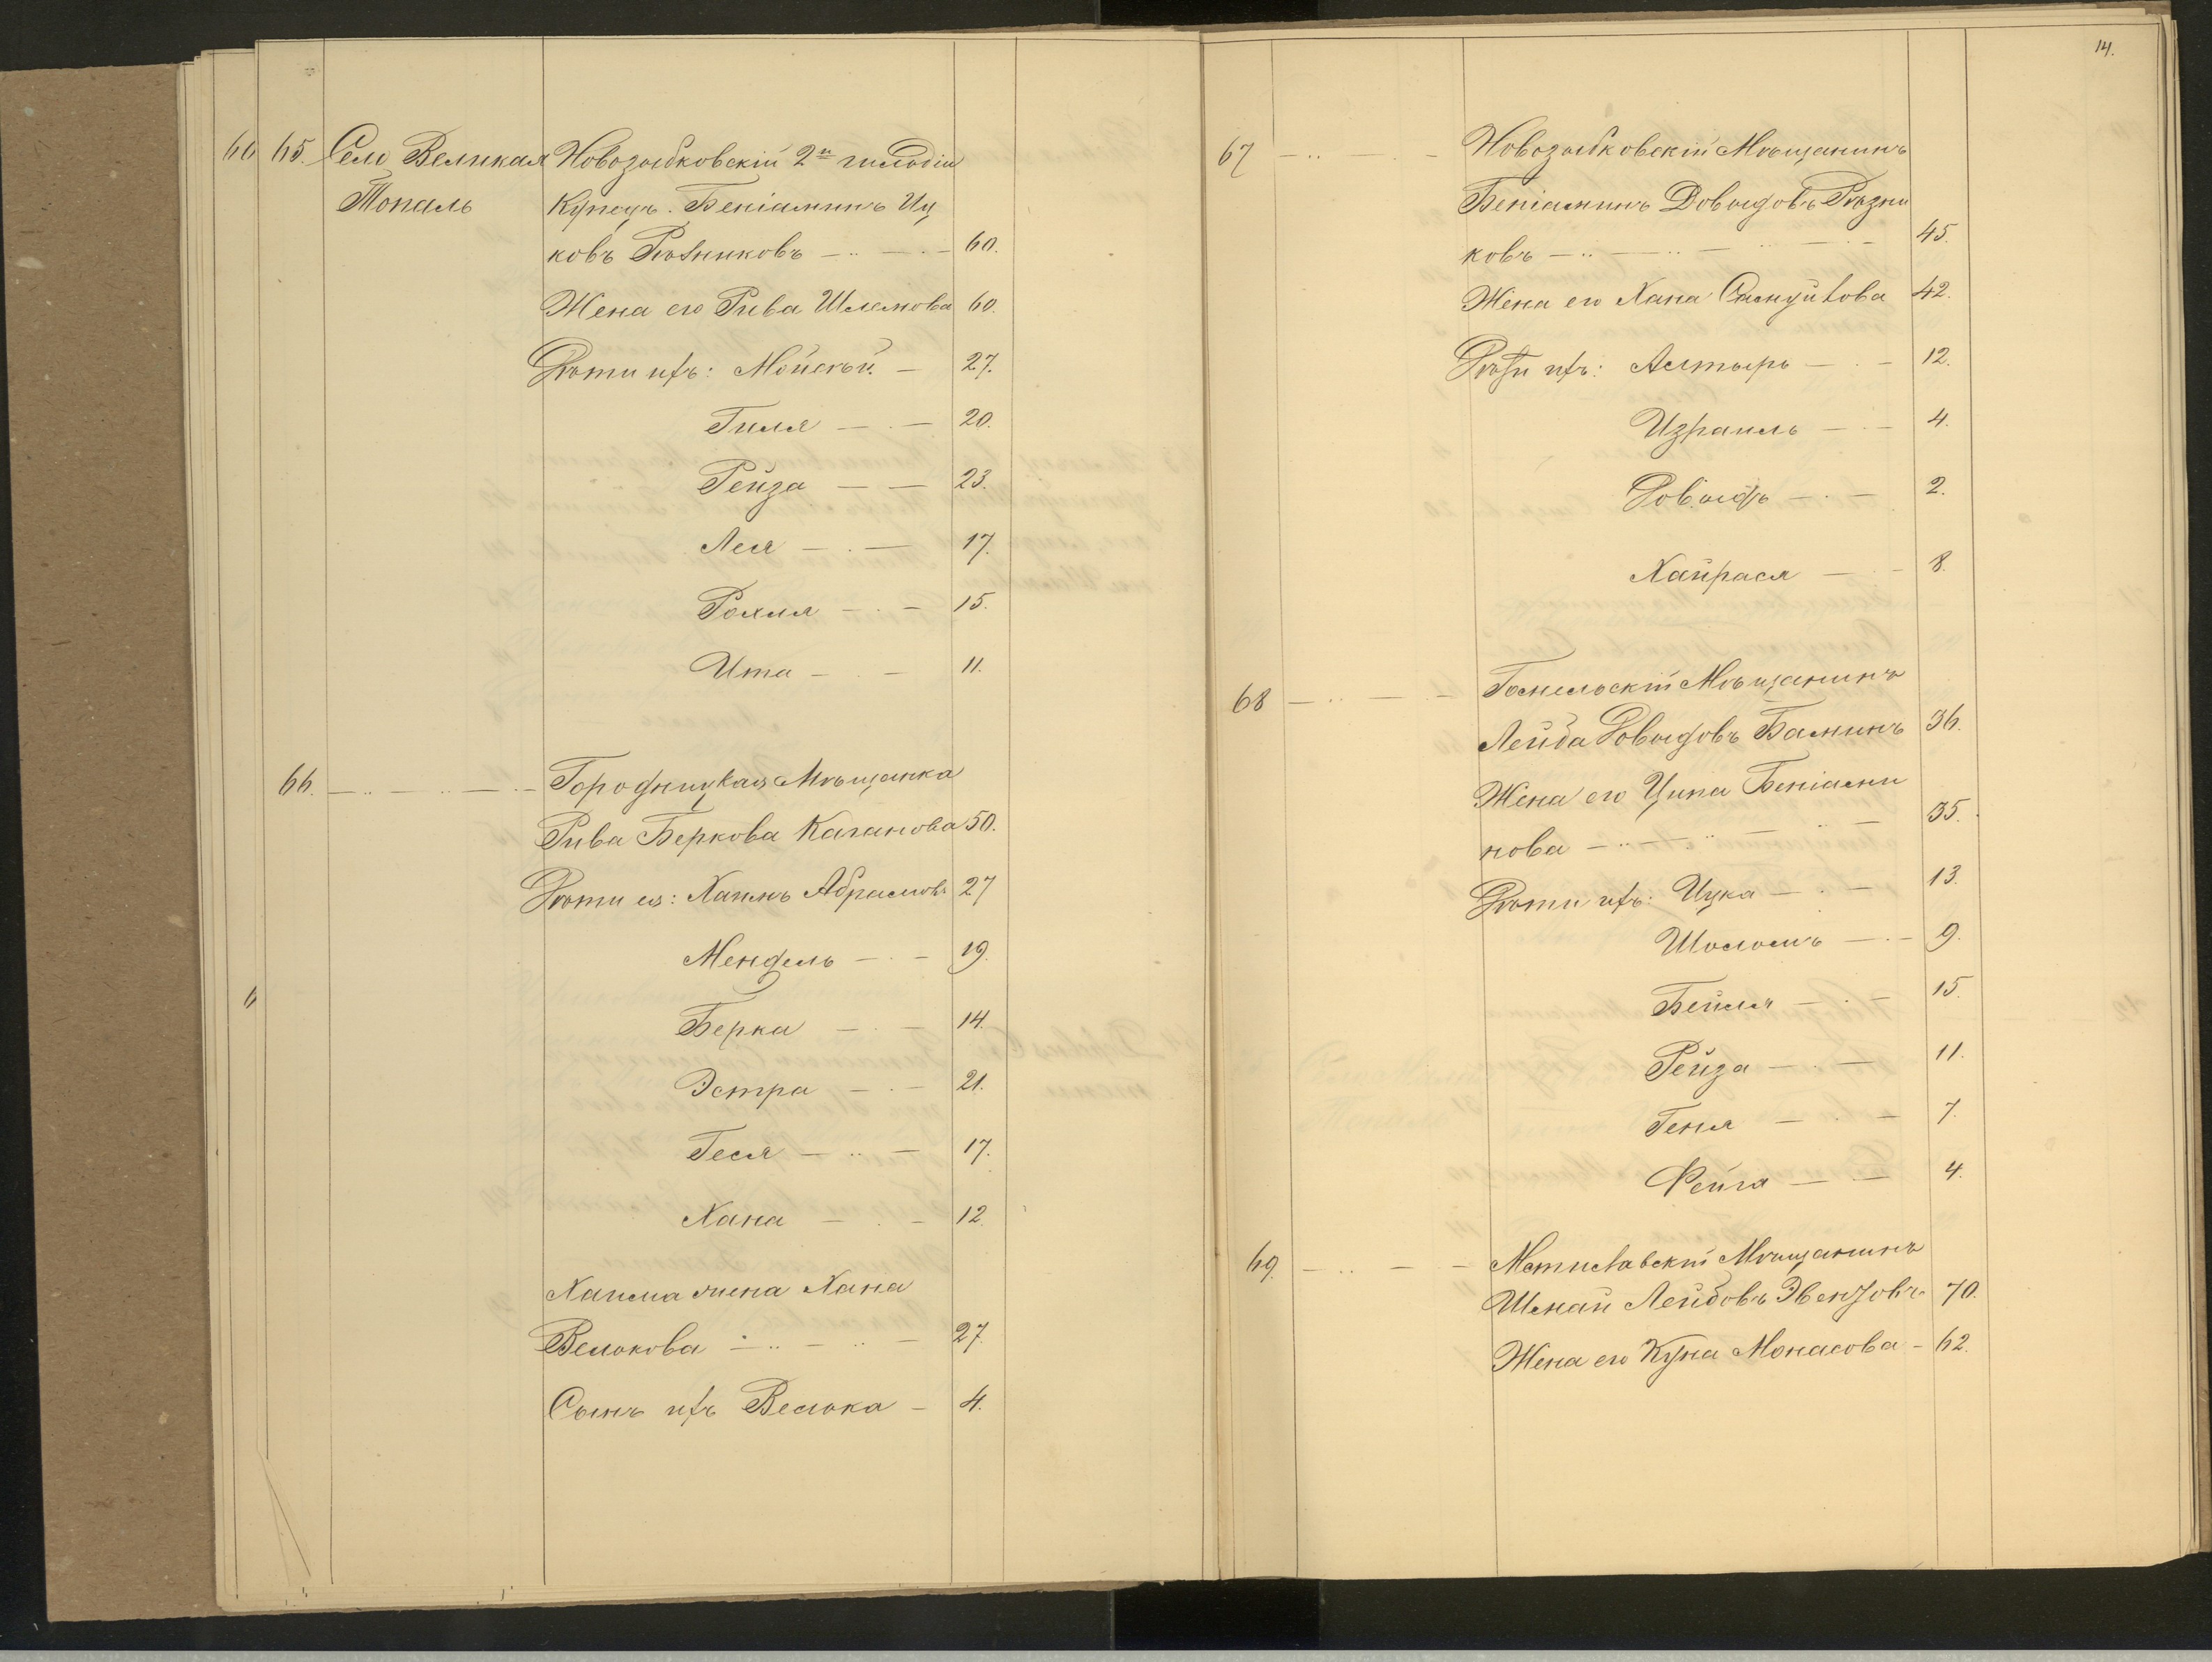 65. Село Великая Новозыбковскій 2й гильдіи
Тополь Купецъ. Беніаминъ Иц
ковъ Рѣзниковъ 60.
Жена его Рива Шлемова 60.
Дѣти ихъ: Мойсѣй 27.
Гиля 20.
Рейза 23.
Лея 17.
Рохля 15.
Ита 11.
66. Городницкая Мѣщанка
Рива Беркова Каганова 50.
Дѣти ея: Хаимъ Абрамовъ 27
Мендель 19.
Берка 14.
Эстра 21.
Геся 17.
Хана 12.
Хаима жена Хана
Велькова 27.
Сынъ ихъ Велька 4.
14.
67 Новозыбковскій Мѣщанинъ
Беніаминъ Довыдовъ Рѣзни
ковъ 45.
Жена его Хана Самуйлова 42.
Дѣти ихъ: Алтыръ 12.
Израиль 4.
Довыдъ 2.
Хайрася 8.
68 Гомельскій Мѣщанинъ
Лейба Довыдовъ Баминъ 36.
Жена его Ципа Беніами
нова 35.
Дѣти ихъ: Ицка 13.
Шоломъ 9.
Бейля 15.
Рейза 11.
Геня 7.
Фейга 4.
69. Мстиславскій Мѣщанинъ
Шмай Лейбовъ 70.
Жена его Куна Монасова 62.